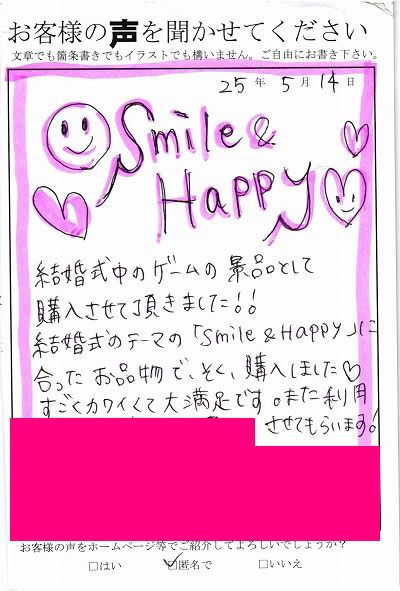 お客様の声を聞かせてください
文章でも箇条書きでもイラストでも構いません。ご自由にお書き下さい。
25年 5月 14日
Smile &
Happy
結婚式中のゲームの景品として
購入させて頂きました!!
結婚式のテーマの「Smile & Happy」に
合ったお品物で、そく、購入しました♡
すごくカワイくて大満足です。また利用
させてもらいます!
お客様の声をホームページ等でご紹介してよろしいでしょうか?
□はい ☑匿名で □いいえ